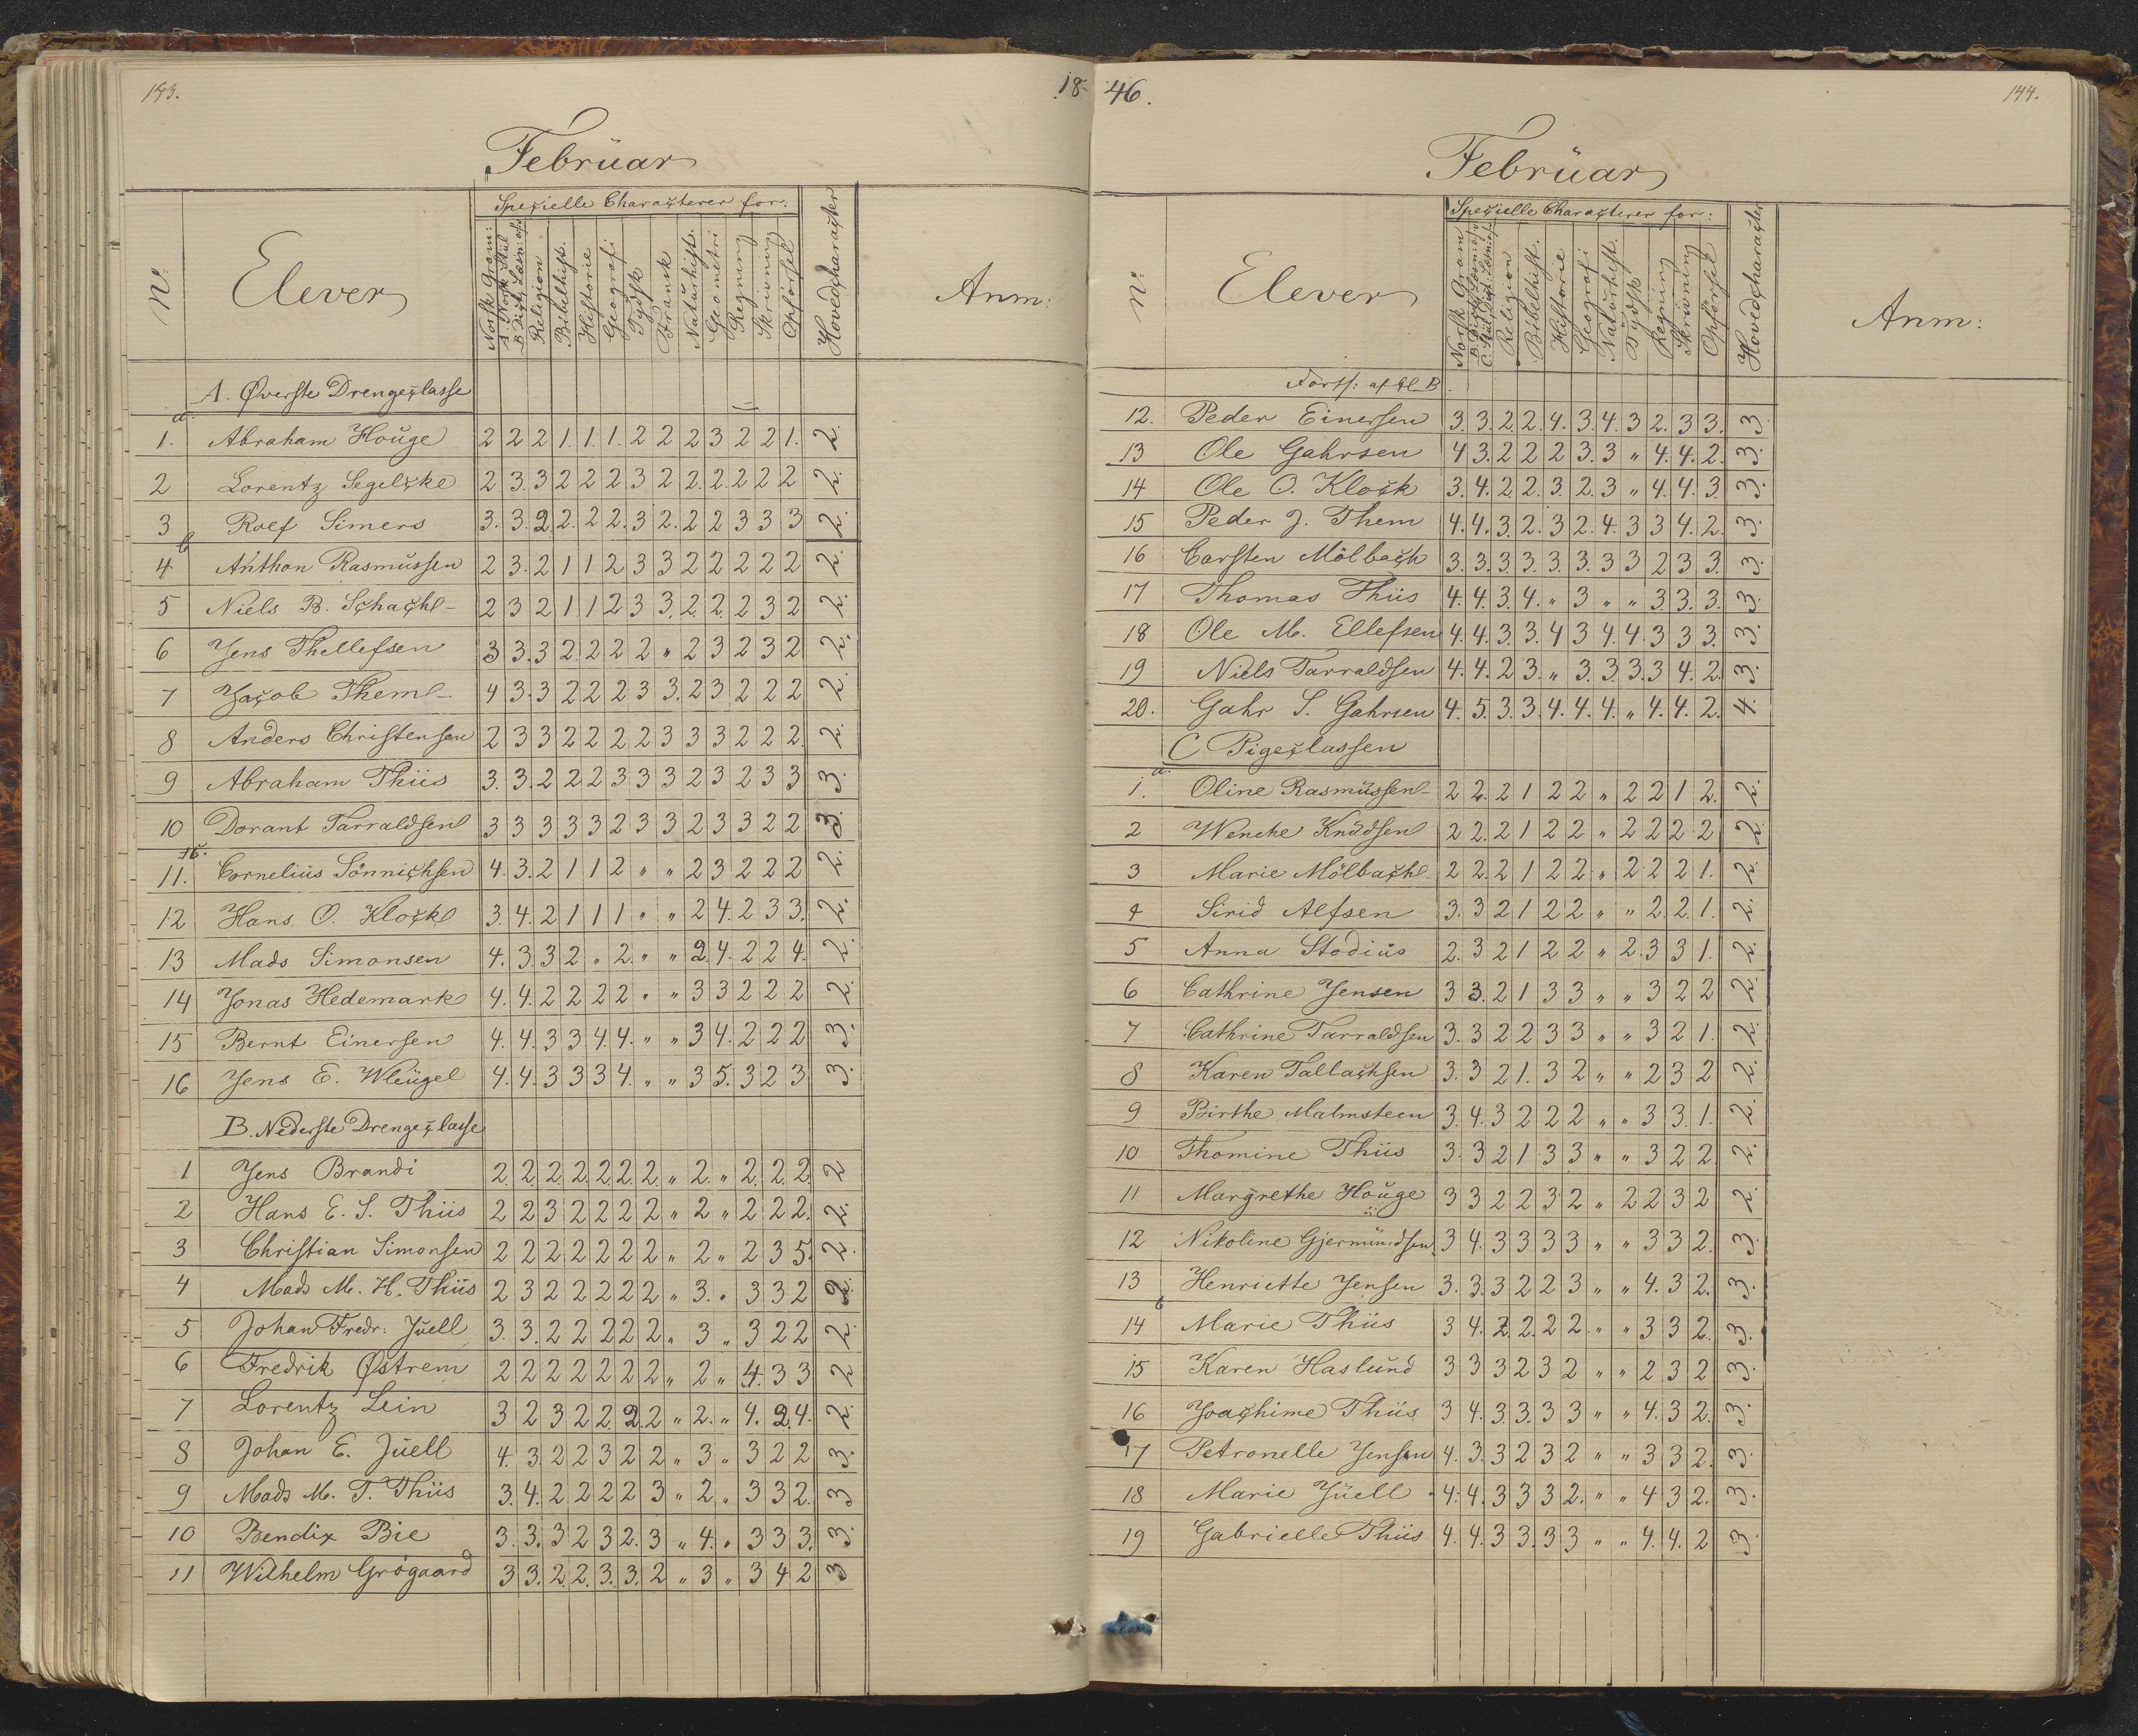 143.
18-
Februar
Nº:
Elever
Specielle Characterer for:
Norsk Gram:
A. Norsk Stiil
B. Dict, Læsn: osv
Religion
Bibelhist.
Historie
Geografi
Tydsk
Fransk
Naturhist.
Geometri
Regning
Skrivning
Opførsel
Hovedcharacter
Anm:
A. Øverste Drengeclasse
a.
1. Abraham Houge 2 2 2 1. 1. 1. 2 2 2 3 2 2 1. 2.
2 Lorentz Segelcke 2. 3. 3 2 2 2 3 2 2. 2. 2 2 2 2.
3 Roef Simers 3. 3. 2. 2. 2 2. 3 2. 2 2 3 3 3 2.
b
4 Anthon Rasmussen 2 3. 2 1 1 2 3 3 2 2 2 2 2 2.
5 Niels B. Schach 2 3 2 1 1 2 3 3. 2. 2. 2 3 2 2.
6 Jens Thellefsen 3 3. 3 2. 2 2 2 " 2 3 2 3 2 2.
7 Jacob Them 4 3. 3 2 2 2 3 3. 2 3 2 2 2 2.
8 Anders Christensen 2 3 3 2 2 2 2 3 3 3 2 2 2. 2.
9 Abraham Thiis 3. 3. 2 2 2 3 3 3 2 3 2 3 3 3.
10 Dorant Tarraldsen 3 3 3 3 3 2 3 3 2 3 3 2 2 3.
11. Cornelius Sönnichsen 4. 3. 2 1 1 2 " " 2 3 2 2 2 2.
12 Hans O. Klock 3. 4. 2 1 1 1 " " 2 4. 2 3 3. 2.
13 Mads Simonsen 4. 3. 3 2 " 2. " " 2 4. 2 2 4. 2.
14 Jonas Hedemark 4. 4. 2 2 2 2 " " 3 3 2 2 2 2.
15 Bernt Einersen 4. 4. 3 3 4. 4. " " 3 4. 2 2 2 3.
16 Jens E. Wleügel 4. 4. 3 3 3 4. " " 3 5. 3 2 3 3.
B. Nederste Drengeclasse
1 Jens Brandi 2. 2. 2. 2. 2. 2. 2. " 2. " 2. 2. 2. 2
2 Hans E. S. Thiis 2 2 3 2 2 2 2 " 2 " 2 2 2. 2.
3 Christian Simonsen 2 2 2 2 2 2 2 " 2 " 2 3 5. 2.
4 Mads M. H. Thiis 2 3 2 2 2 2 2 " 3. " 3 3 2 2.
5 Johan Fredr: Juell 3. 3. 2 2 2 2 2 " 3 " 3 2 2 2.
6 Fredrik Østrem 2 2 2 2 2 2 2 " 2 " 4. 3 3 2
7 Lorentz Lein 3 2 3 2 2 2. 2 " 2. " 4. 2 4. 2.
8 Johan E. Juell 4. 3. 2 2 3 2 2 " 3 " 3 2 2 3.
9 Mads M. T. Thiis 3. 4. 2 2 2 2 3 " 2 " 3 3 2. 3
10 Bendix Bie 3. 3. 3 2 3 2. 3 " 4. " 3 3 3. 3.
11 Wilhelm Grögaard 3 3. 2. 2. 3. 3. 2 " 3 " 3 4 2 3
46.
144.
Februar
Nº:
Elever
Specielle Characterer for:
Norsk Gram
B. Dict. Læsn: osv
C. Stiil, Dict: Læsn: osv
Religion
Bibelhist.
Historie
Geografi
Naturhist.
Tydsk
Regning
Skrivning
Opförsel
Hovedcharacter
Anm:
Forts: af Cl. B.
12. Peder Einersen 3. 3. 2. 2. 4. 3. 4. 3 2. 3 3. 3.
13 Ole Gahrsen 4 3. 2 2 2 3. 3 " 4. 4. 2. 3.
14 Ole O. Klock 3. 4. 2 2. 3. 2. 3 " 4. 4. 3. 3.
15 Peder J. Them 4. 4. 3. 2. 3 2. 4. 3 3 4. 2. 3.
16 Carsten Mölbach 3. 3. 3. 3. 3. 3. 3 3 2 3 3. 3.
17 Thomas Thiis 4. 4. 3. 4. " 3 " " 3. 3. 3. 3.
18 Ole M. Ellefsen 4. 4. 3. 3. 4 3 4. 4. 3 3 3. 3.
19 Niels Tarraldsen 4. 4. 2 3. " 3. 3. 3. 3 4. 2. 3.
20. Gahr S. Gahrsen 4. 5. 3. 3. 4. 4. 4. " 4. 4. 2. 4.
C Pigeclassen
a.
1. Oline Rasmussen 2 2. 2 1 2 2 " 2 2 1 2. 2.
2 Wenche Knudsen 2 2. 2 1 2 2 " 2 2 2 2 2.
3 Marie Mölbach 2 2. 2 1 2 2 " 2 2 2 1. 2.
4 Sirid Alfsen 3. 3 2 1 2 2 " " 2. 2. 1. 2.
5 Anna Stodius 2. 3 2 1 2 2 " 2. 3 3 1. 2.
6 Cathrine Jensen 3 3. 2 1 3 3 " " 3 2 2 2.
7 Cathrine Tarraldsen 3. 3 2 2 3 3 " " 3 2 1. 2.
8 Karen Tallachsen 3. 3 2 1. 3 2 " " 2 3 2 2.
9 Birthe Malmsteen 3. 4. 3 2 2 2 " " 3 3. 1. 2.
10 Thomine Thiis 3. 3 2 1 3 3 " " 3 2 2. 2.
11 Margrethe Houge 3 3 2 2 3 2 " 2 2 3 2 2.
12 Nikoline Gjermundsen 3 4. 3 3 3 3 " " 3 3 2. 3.
13 Henriette Jensen 3. 3. 3 2 2 3 " " 4. 3 2. 3.
b
14 Marie Thiis 3 4. 2 2. 2 2. " " 3 3 2. 3.
15 Karen Haslund 3 3 3 2 3 2 " " 2 3 2 3.
16 Joachime Thiis 3 4. 3. 3. 3 3 " " 4. 3 2. 3.
17 Petronelle Jensen 4. 3. 3 2 3 2 " " 3 3 2. 3.
18 Marie Juell 4. 4. 3 3 3 2. " " 4 3 2. 3.
19 Gabrielle Thiis 4. 4. 3 3. 3 3 " " 4. 4. 2 3.